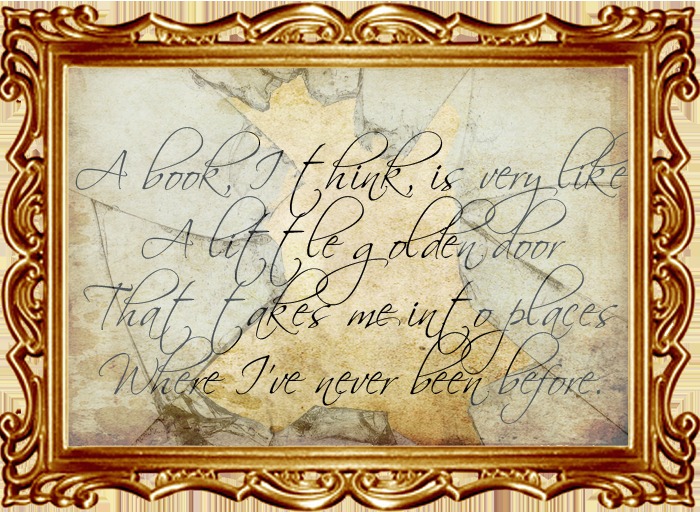 A book, I think, is very like
A little golden door
That takes me into places
Where I've never been before.